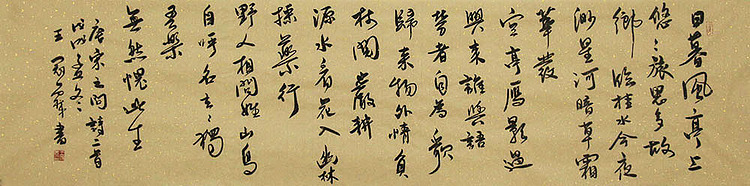 日暮風亭上
悠々旅思多故
鄉臨桂水今夜
渺星河暗草霜
華發
空亭雁影過
興來誰與語
勞者自為歌
歸來物外情負
杖閱巖耕
源水看花入幽林
採藥行
野人相問姓山鳥
自呼名去々獨
吾樂
無然愧此生
唐宋之問詩二首
戊戌孟冬
王 書